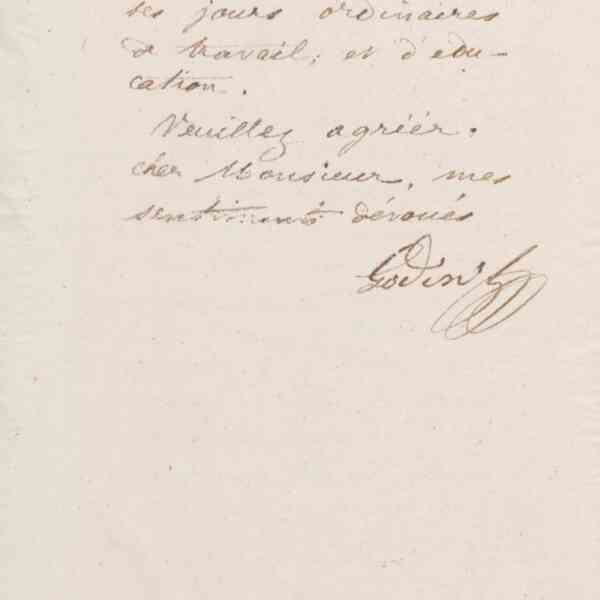 ses jours ordinaires
de travail, et d'edu-
cation.
Veuillez agréer,
cher Monsieur, mes
sentiments dévoués
Godin